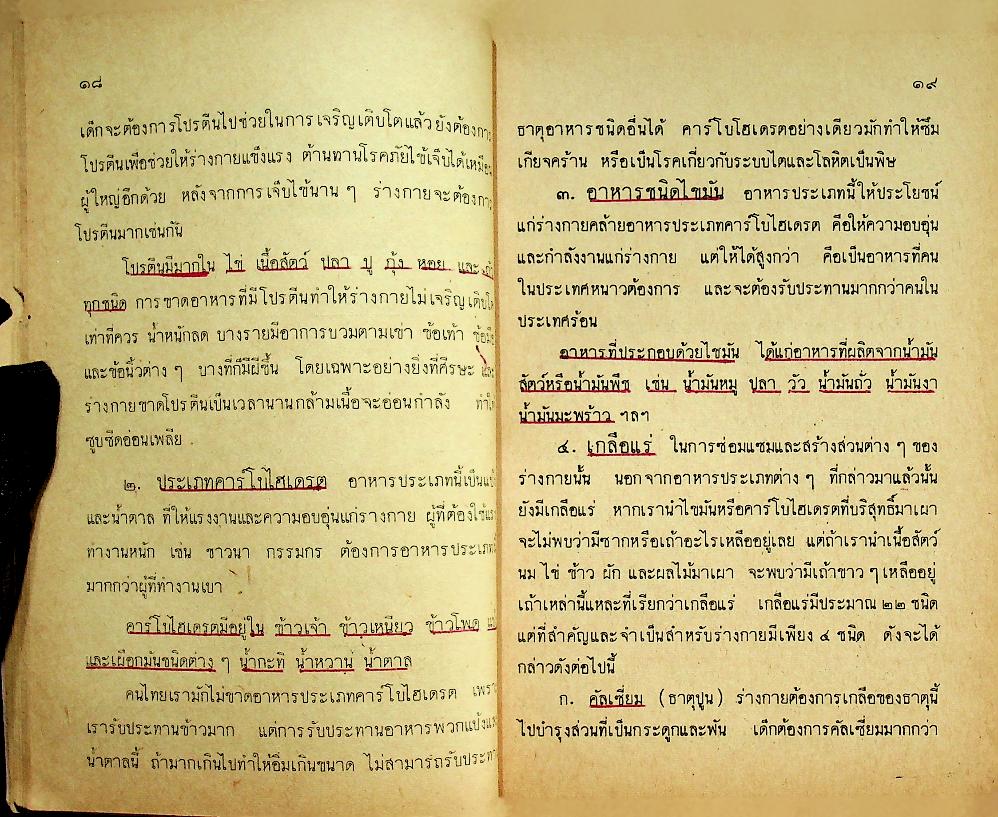 ๑๘
เด็กจะต้องการโปรตีนไปช่วยในการเจริญเติบโตแล้วยังต้องการ
โปรตีนเพื่อช่วยให้ร่างกายแข็งแรง ต้านทานโรคภัยไข้เจ็บได้เหมือน
ผู้ใหญ่อีกด้วย หลังจากการเจ็บไข้นาน ๆ ร่างกายจะต้องการ
โปรตีนมากเช่นกัน
โปรตีนมีมากใน ไข่ เนื้อสัตว์ ปลา ปู กุ้ง หอย และ
ทุกชนิด การขาดอาหารที่มีโปรตีนทำให้ร่างกายไม่เจริญเติบโต
เท่าที่ควร น้ำหนักลด บางรายมีอาการบวมตามเข่า ข้อเท้า ข้อมือ
และข้อนิ้วต่าง ๆ บางทีก็มีฝีขึ้น โดยเฉพาะอย่างยิ่งที่ศีรษะ
ร่างกายขาดโปรตีนเป็นเวลานานกล้ามเนื้อจะอ่อนกำลัง ทำให้
ซูบซีดอ่อนเพลีย
๒. ประเภทคาร์โบไฮเดรต อาหารประเภทนี้เป็นแป้ง
และน้ำตาล ที่ให้แรงงานและความอบอุ่นแก่ร่างกาย ผู้ที่ต้องใช้แรง
ทำงานหนัก เช่น ชาวนา กรรมกร ต้องการอาหารประเภทนี้
มากกว่าผู้ที่ทำงานเบา
คาร์โบไฮเดรตมีอยู่ใน ข้าวเจ้า ข้าวเหนียว ข้าวโพด
และเผือกมันชนิดต่าง ๆ น้ำกะทิ น้ำหวาน น้ำตาล
คนไทยเรามักไม่ขาดอาหารประเภทคาร์โบไฮเดรต เพราะ
เรารับประทานข้าวมาก แต่การรับประทานอาหารพวกแป้งและ
น้ำตาลนี้ ถ้ามากเกินไปทำให้อิ่มเกินขนาด ไม่สามารถรับประทาน
๑๙
ธาตุอาหารชนิดอื่นได้ คาร์โบโฮเดรตอย่างเดียวมักทำให้ซึม
เกียจคร้าน หรือเป็นโรคเกี่ยวกับระบบไตและโลหิตเป็นพิษ
๓. อาหารชนิดไขมัน อาหารประเภทนี้ให้ประโยชน์
แก่ร่างกายคล้ายอาหารประเภทคาร์โบไฮเดรต คือให้ความอบอุ่น
และกำลังงานแก่ร่างกาย แต่ให้ได้สูงกว่า คือเป็นอาหารที่คน
ในประเทศหนาวต้องการ และจะต้องรับประทานมากกว่าคนใน
ประเทศร้อน
อาหารที่ประกอบด้วยไขมัน ได้แก่อาหารที่ผลิตจากน้ำมัน
สัตว์หรือน้ำมันพืช เช่น น้ำมันหมู ปลา วัว น้ำมันถั่ว น้ำมันงา
น้ำมันมะพร้าว ฯลฯ
๔. เกลือแร่ ในการซ่อมแซมและสร้างส่วนต่าง ๆ ของ
ร่างกายนั้น นอกจากอาหารประเภทต่าง ๆ ที่กล่าวมาแล้วนั้น
ยังมีเกลือแร่ หากเรานำไขมันหรือคาร์โบไฮเดรตที่บริสุทธิ์มาเผา
จะไม่พบว่ามีซากหรือเถ้าอะไรเหลืออยู่เลย แต่ถ้าเรานำเนื้อสัตว์
นม ไข่ ข้าว ผัก และผลไม้มาเผา จะพบว่ามีเถ้าขาว ๆ เหลืออยู่
เถ้าเหล่านี้แหละที่เรียกว่าเกลือแร่ เกลือแร่มีประมาณ ๒๒ ชนิด
แต่ที่สำคัญและจำเป็นสำหรับร่างกายมีเพียง ๔ ชนิด ดังจะได้
กล่าวดังต่อไปนี้
ก. คัลเซี่ยม (ธาตุปูน) ร่างกายต้องการเกลือของธาตุนี้
ไปบำรุงส่วนที่เป็นกระดูกและฟัน เด็กต้องการคัลเซี่ยมมากกว่า